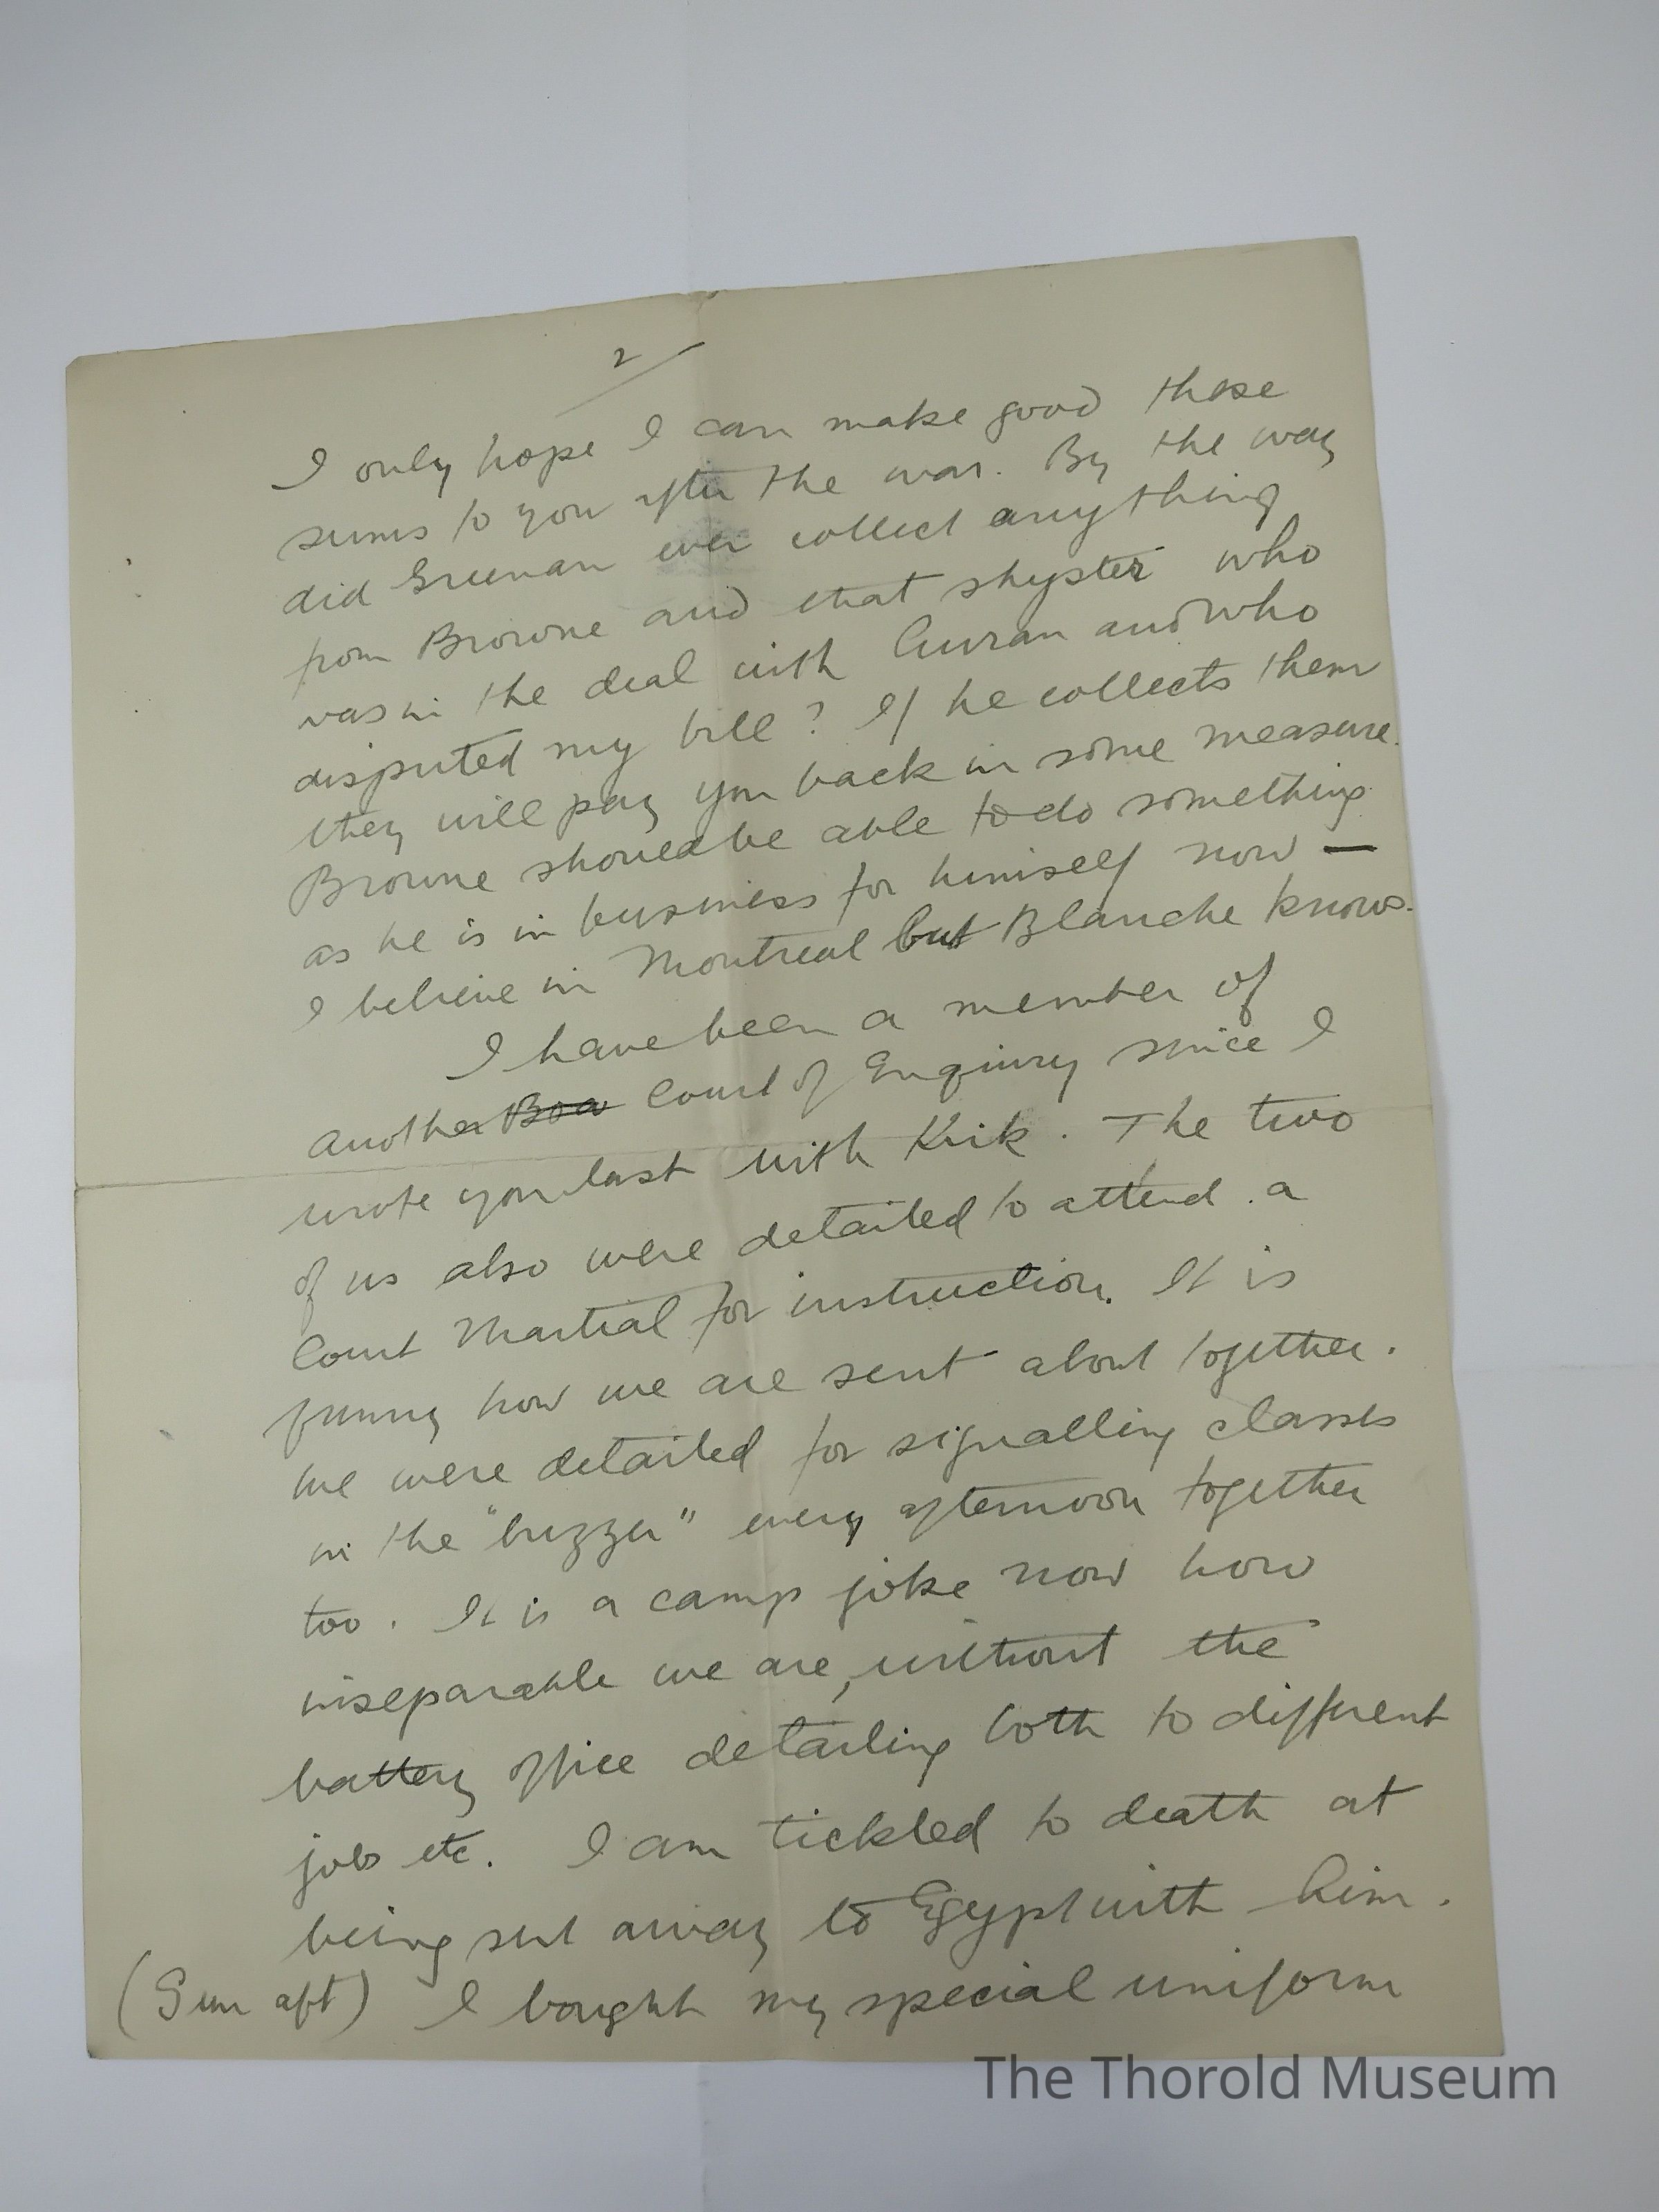 2/
I only hope I can make good these
sums to you after the war. By the way
did Greenan ever collect anything
from Browne and that shyster who
was in the deal with Curran and who
disputed my bill? If he collects them
they will pay you back in some measure.
Browne should be able to do something
as he is in business for himself now —
I believe in Montreal but Blanche knows.
I have been a member of
another Boa Court of Enquiry since I
wrote you last with Kirk. The two
of us also were detailed to attend a
Court Martial for instruction. It is
funny how we are sent about together.
We were detailed for signalling classes
in the "buzzer" every afternoon together
too. It is a camp joke now how
inseparable we are, without the
battery office detailing both to different
jobs etc. I am tickled to death at
being sent away to Egypt with him.
(Sun aft) I bought my special uniform
The Thorold Museum